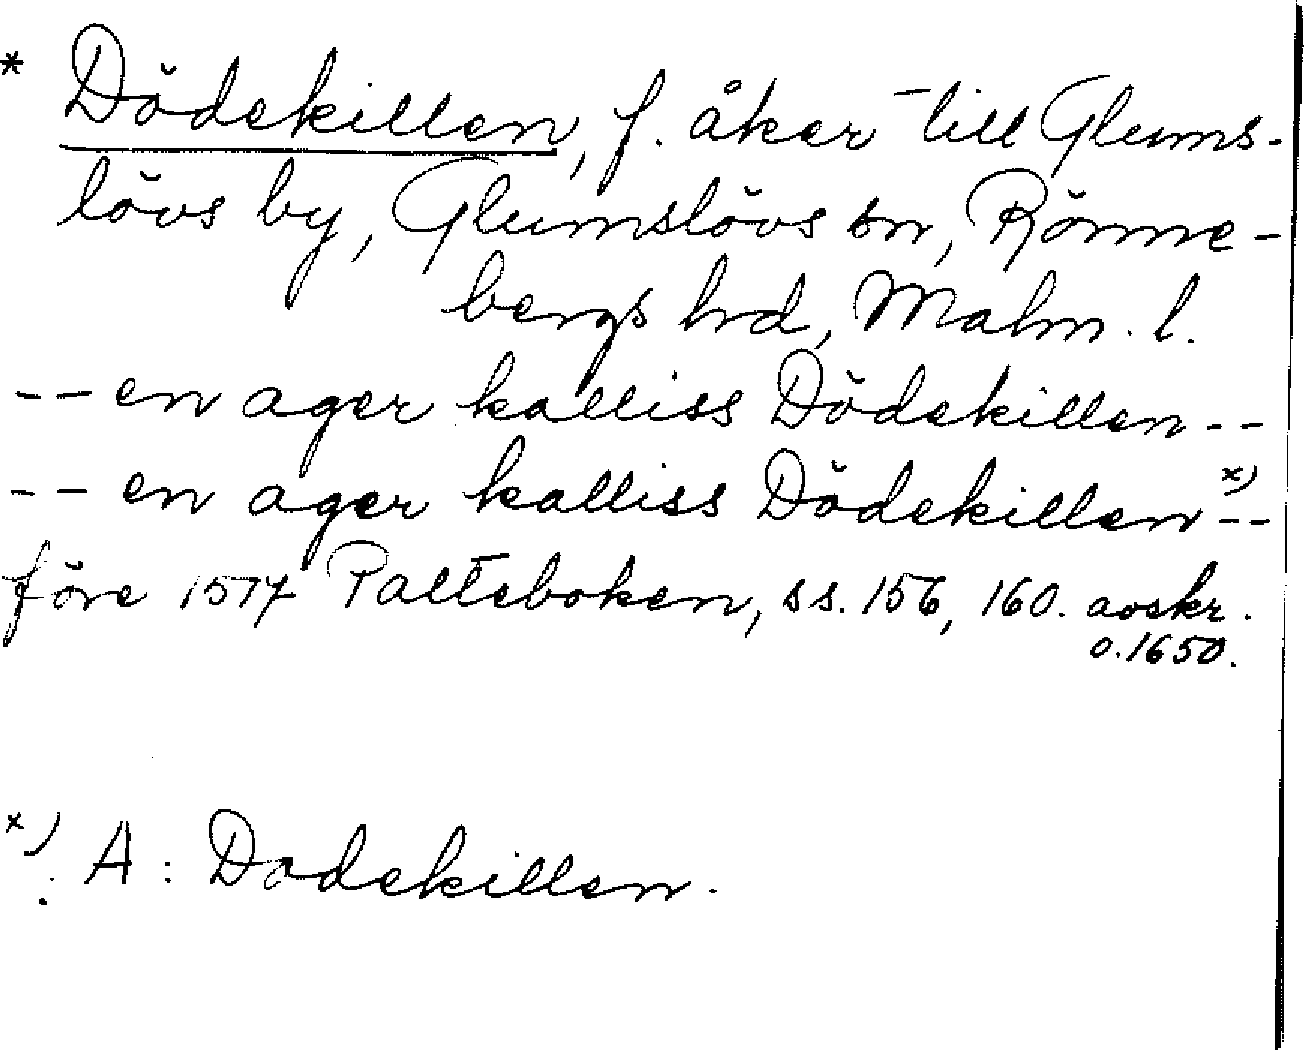 * Dödekillen, f. åker till Glums-
lövs by, Glumslövs sn, Rönne-
bergs hrd, Malm. l.
-- en ager kalliss Dödekillen --
-- en ager kalliss Dödekillen x) --
före 1517 Palteboken, ss. 156, 160. avskr.
o. 1650.
x) A: Dodekillen.